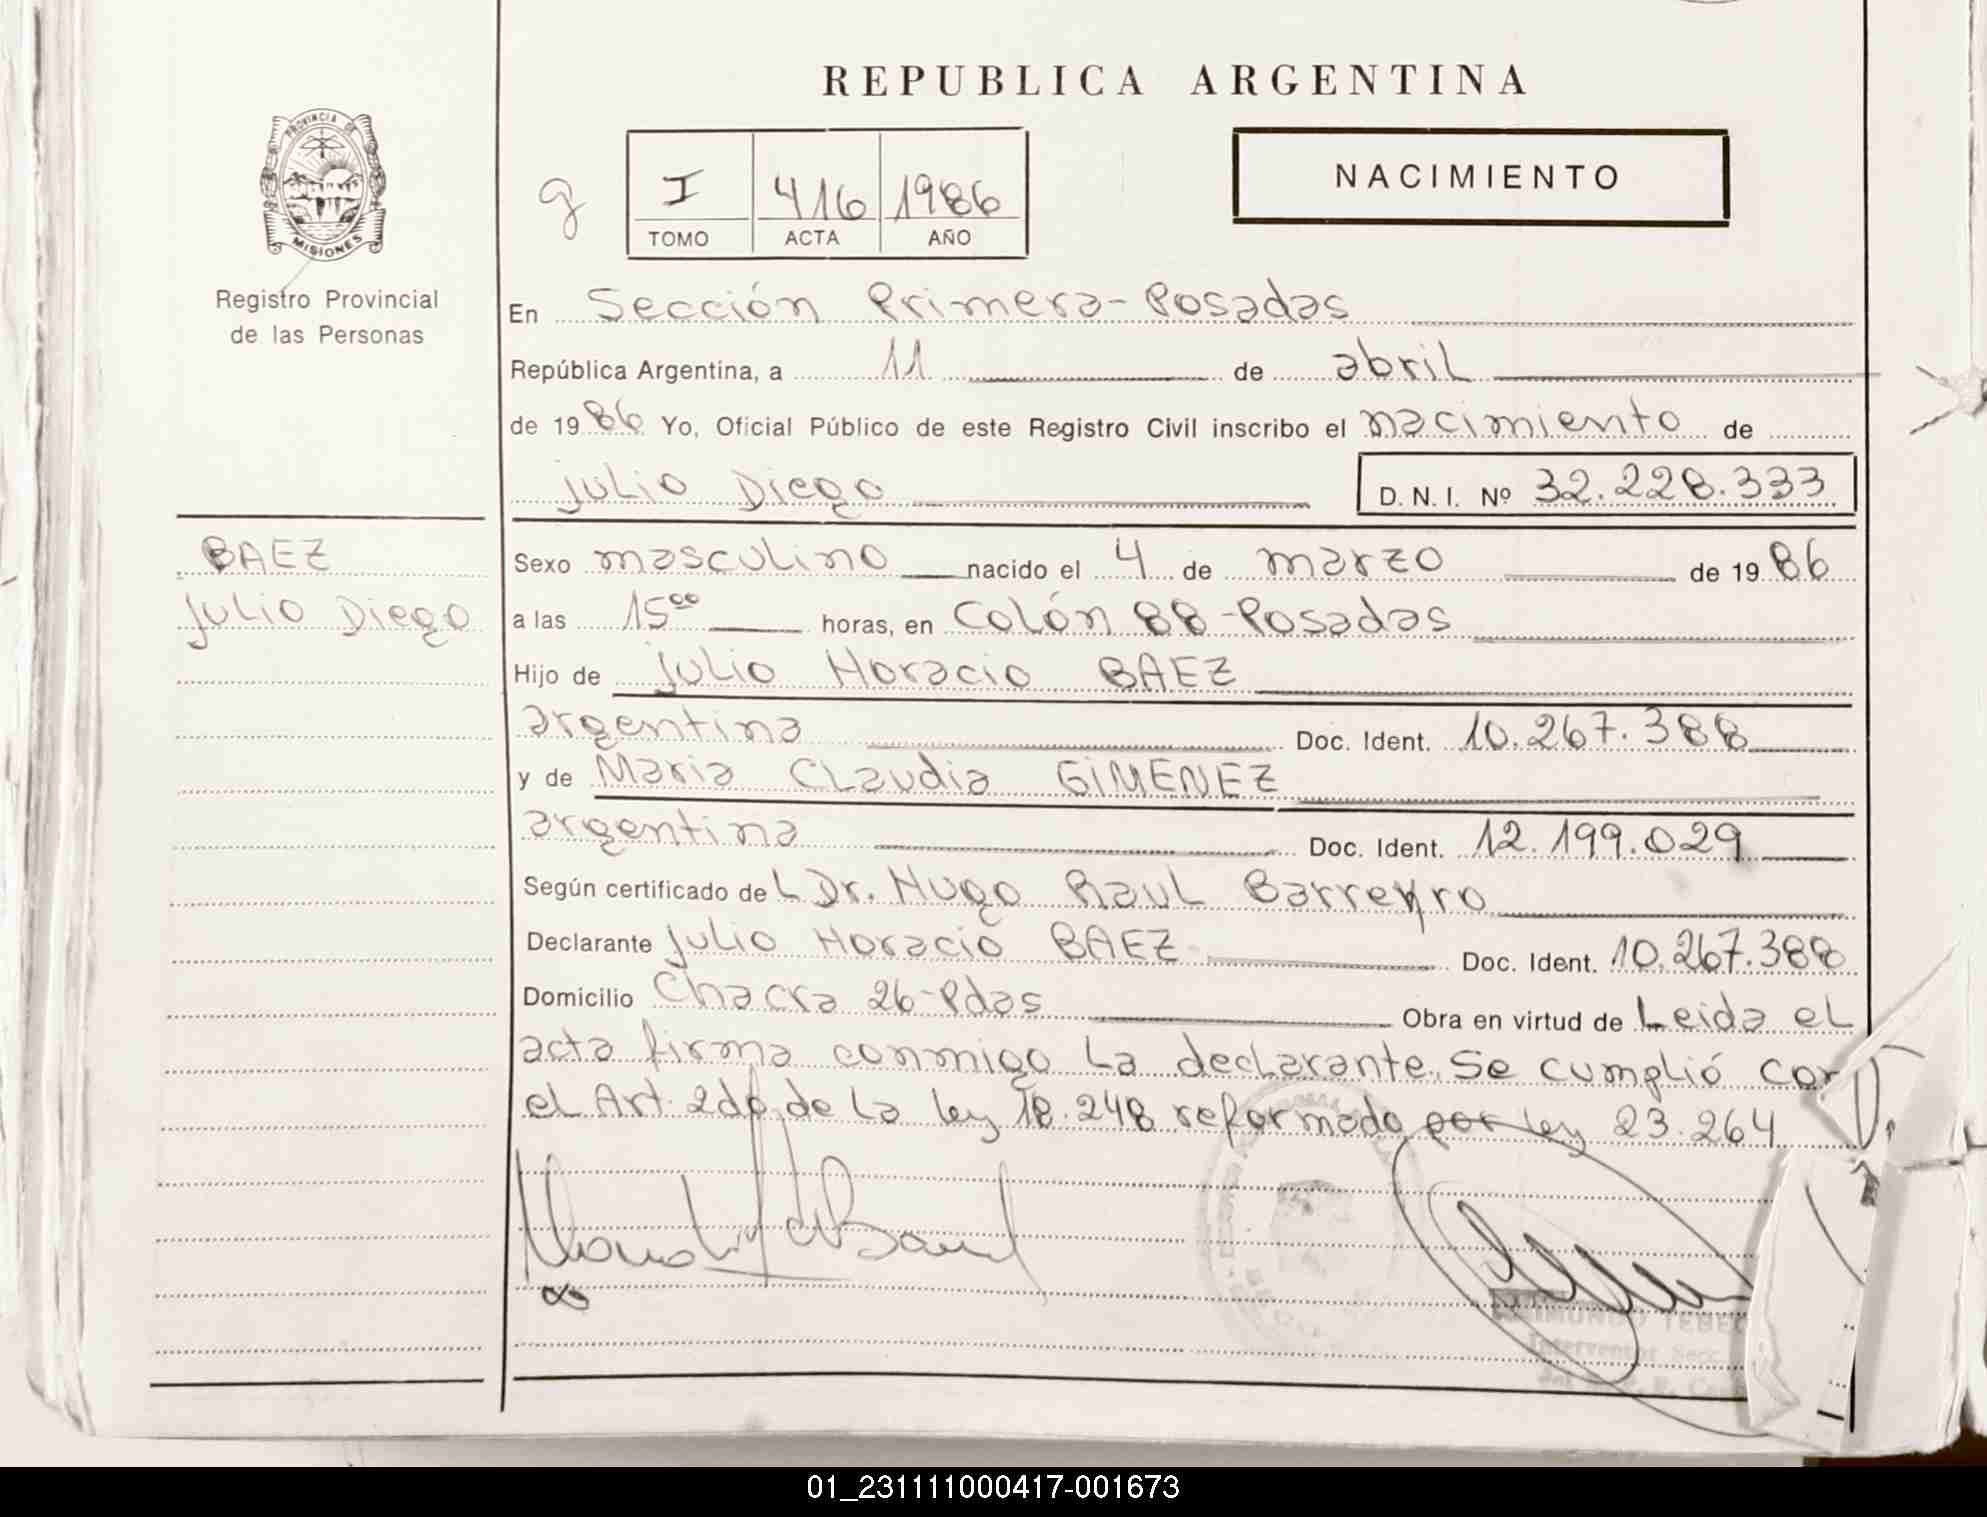 REPUBLICA ARGENTINA
PROVINCIA DE
MISIONES
Registro Provincial
de las Personas
g
I 416 1986
TOMO ACTA AÑO
NACIMIENTO
En Sección Primera-Posadas
República Argentina, a 11 de abril
de 1986 Yo, Oficial Público de este Registro Civil inscribo el nacimiento de
Julio Diego D. N. I. Nº 32.228.333
BAEZ
Julio Diego
Sexo masculino nacido el 4 de marzo de 1986
a las 15⁰⁰ horas, en Colón 88-Posadas
Hijo de Julio Horacio BAEZ
argentina Doc. Ident. 10.267.388
y de Maria Claudia GIMENEZ
argentina Doc. Ident. 12.199.029
Según certificado del Dr. Hugo Raul Barreyro
Declarante Julio Horacio BAEZ Doc. Ident. 10.267.388
Domicilio Chacra 26-Pdas Obra en virtud de Leida el
acta firma conmigo la declarante. Se cumplió con
el Art. 2do de la ley 18.248 reformado por ley 23.264
Interventor Secc.
01_231111000417-001673